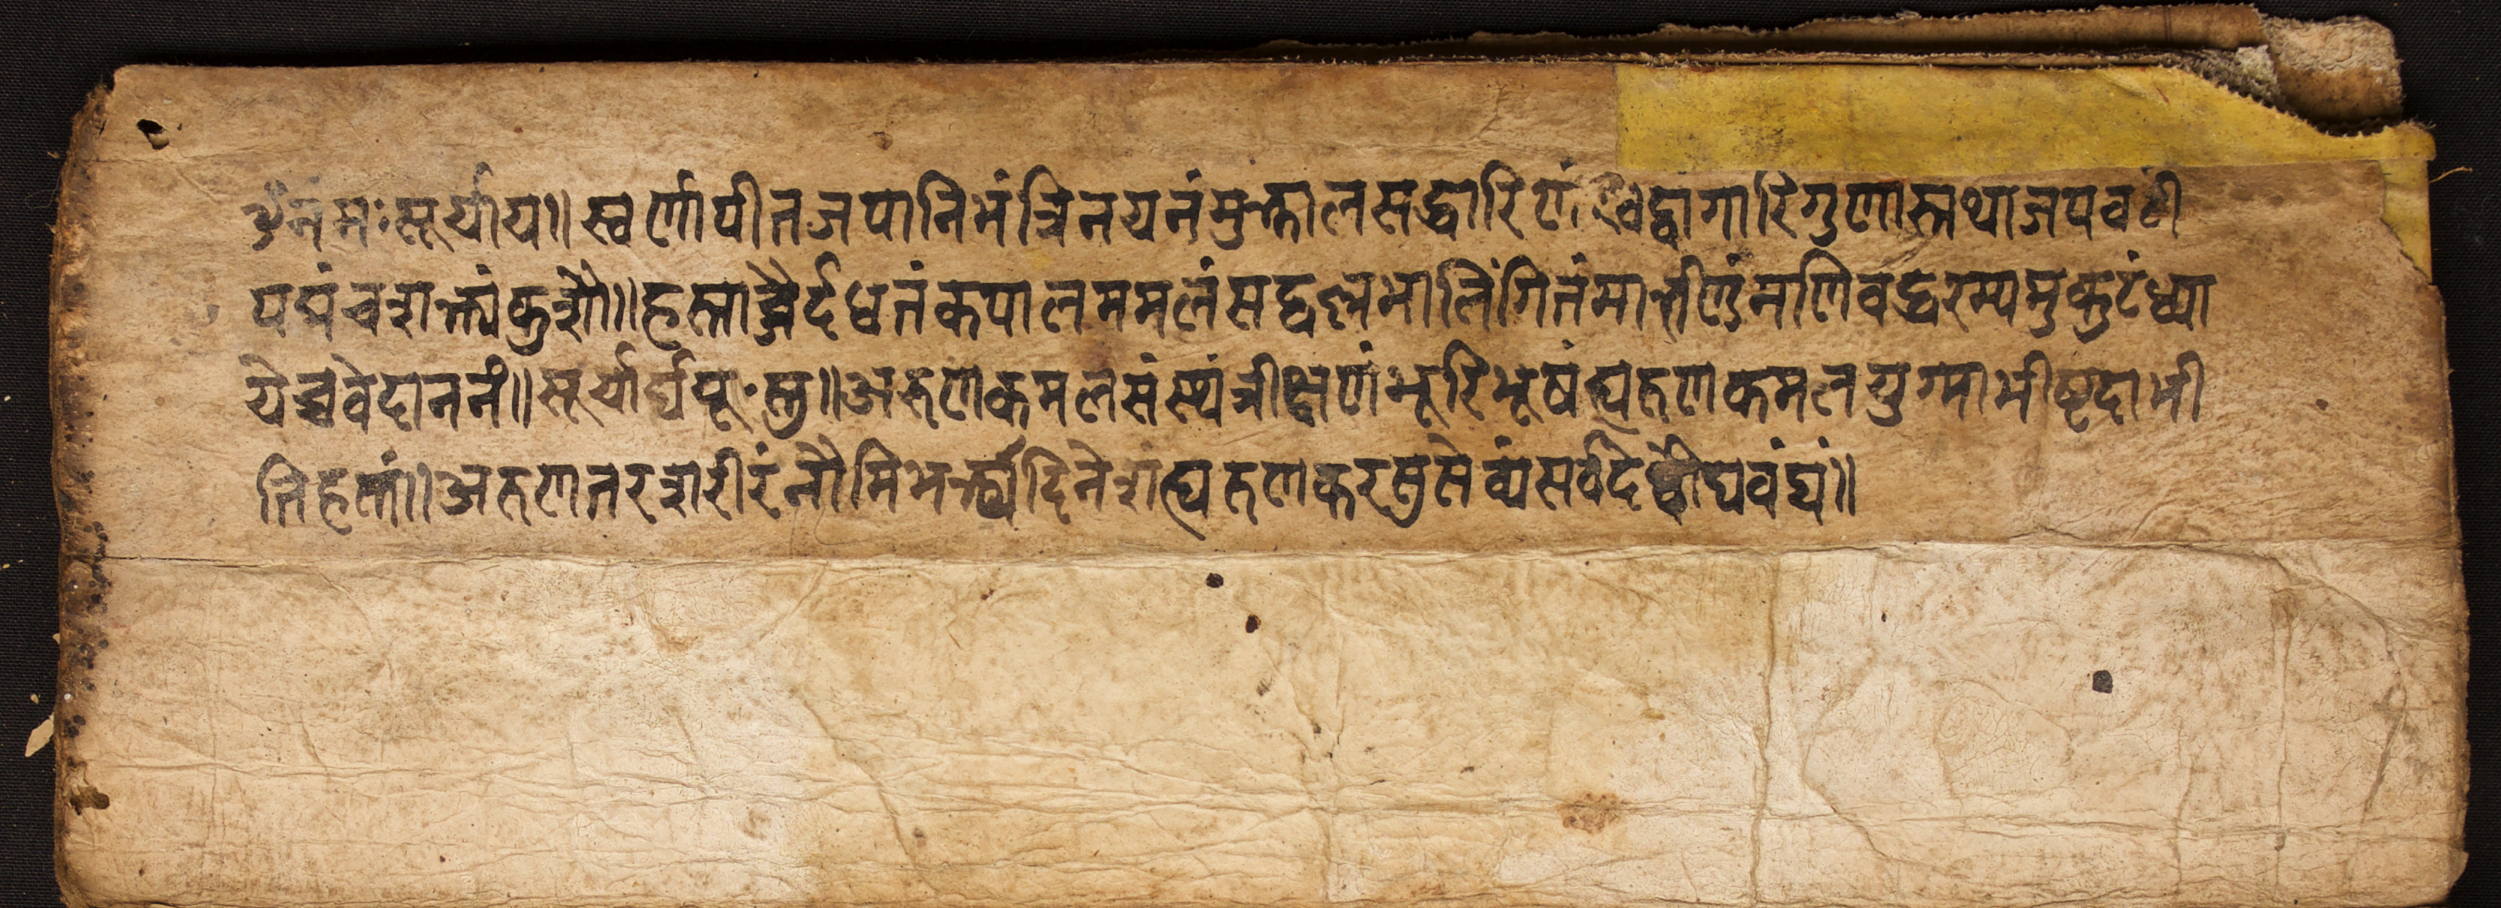 ॐ नमः सूर्याय॥ स्वर्णापीतजपानिभं त्रिनयनं मुक्तालसद्धारिणं खट्वागारिगुणास्तथा जपवटी
पद्मं च शक्त्यंकुशौ॥ हस्ताब्जैर्दधतं कपालममलं सद्वल्लभालिंगितं मार्त्तण्डं मणिवद्धरम्यमुकुटं ध्या
येच्चवेदाननं॥ सूर्यार्घपू॰स्तु॥ अरुणकमलसंस्थं त्रीक्षणं भूरिभूषं ह्यरुणकमलयुग्माभीष्टदाभी
तिहस्तं॥ अरुणतरशरीरं नौमि भक्त्या दिनेशं ह्यरुणकरसुसेव्यं सर्वदेवौघवंद्यं॥